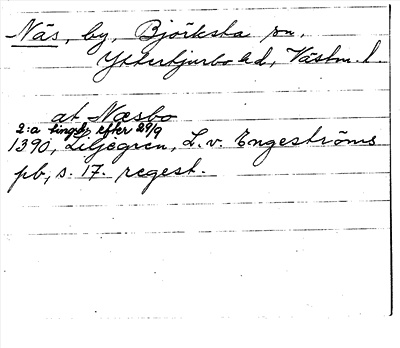 Näs, by, Björksta sn,
Yttertjurbo hd, Västm. l.
at Næsbo
2:a tingsd. efter 29/9
1390, Liljegren, L. v. Engeströms
pb, s. 17. regest.